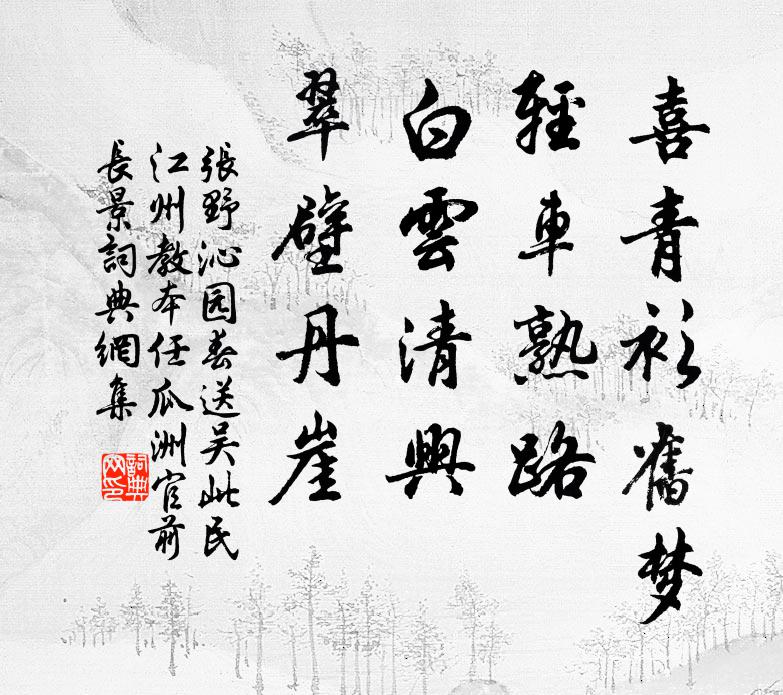 喜青衫舊梦
輕車熟路
白雲清興
翠壁丹崖
張野沁园春送吴此民
江州教本任瓜洲官前
長景詞典網集
詞典网印